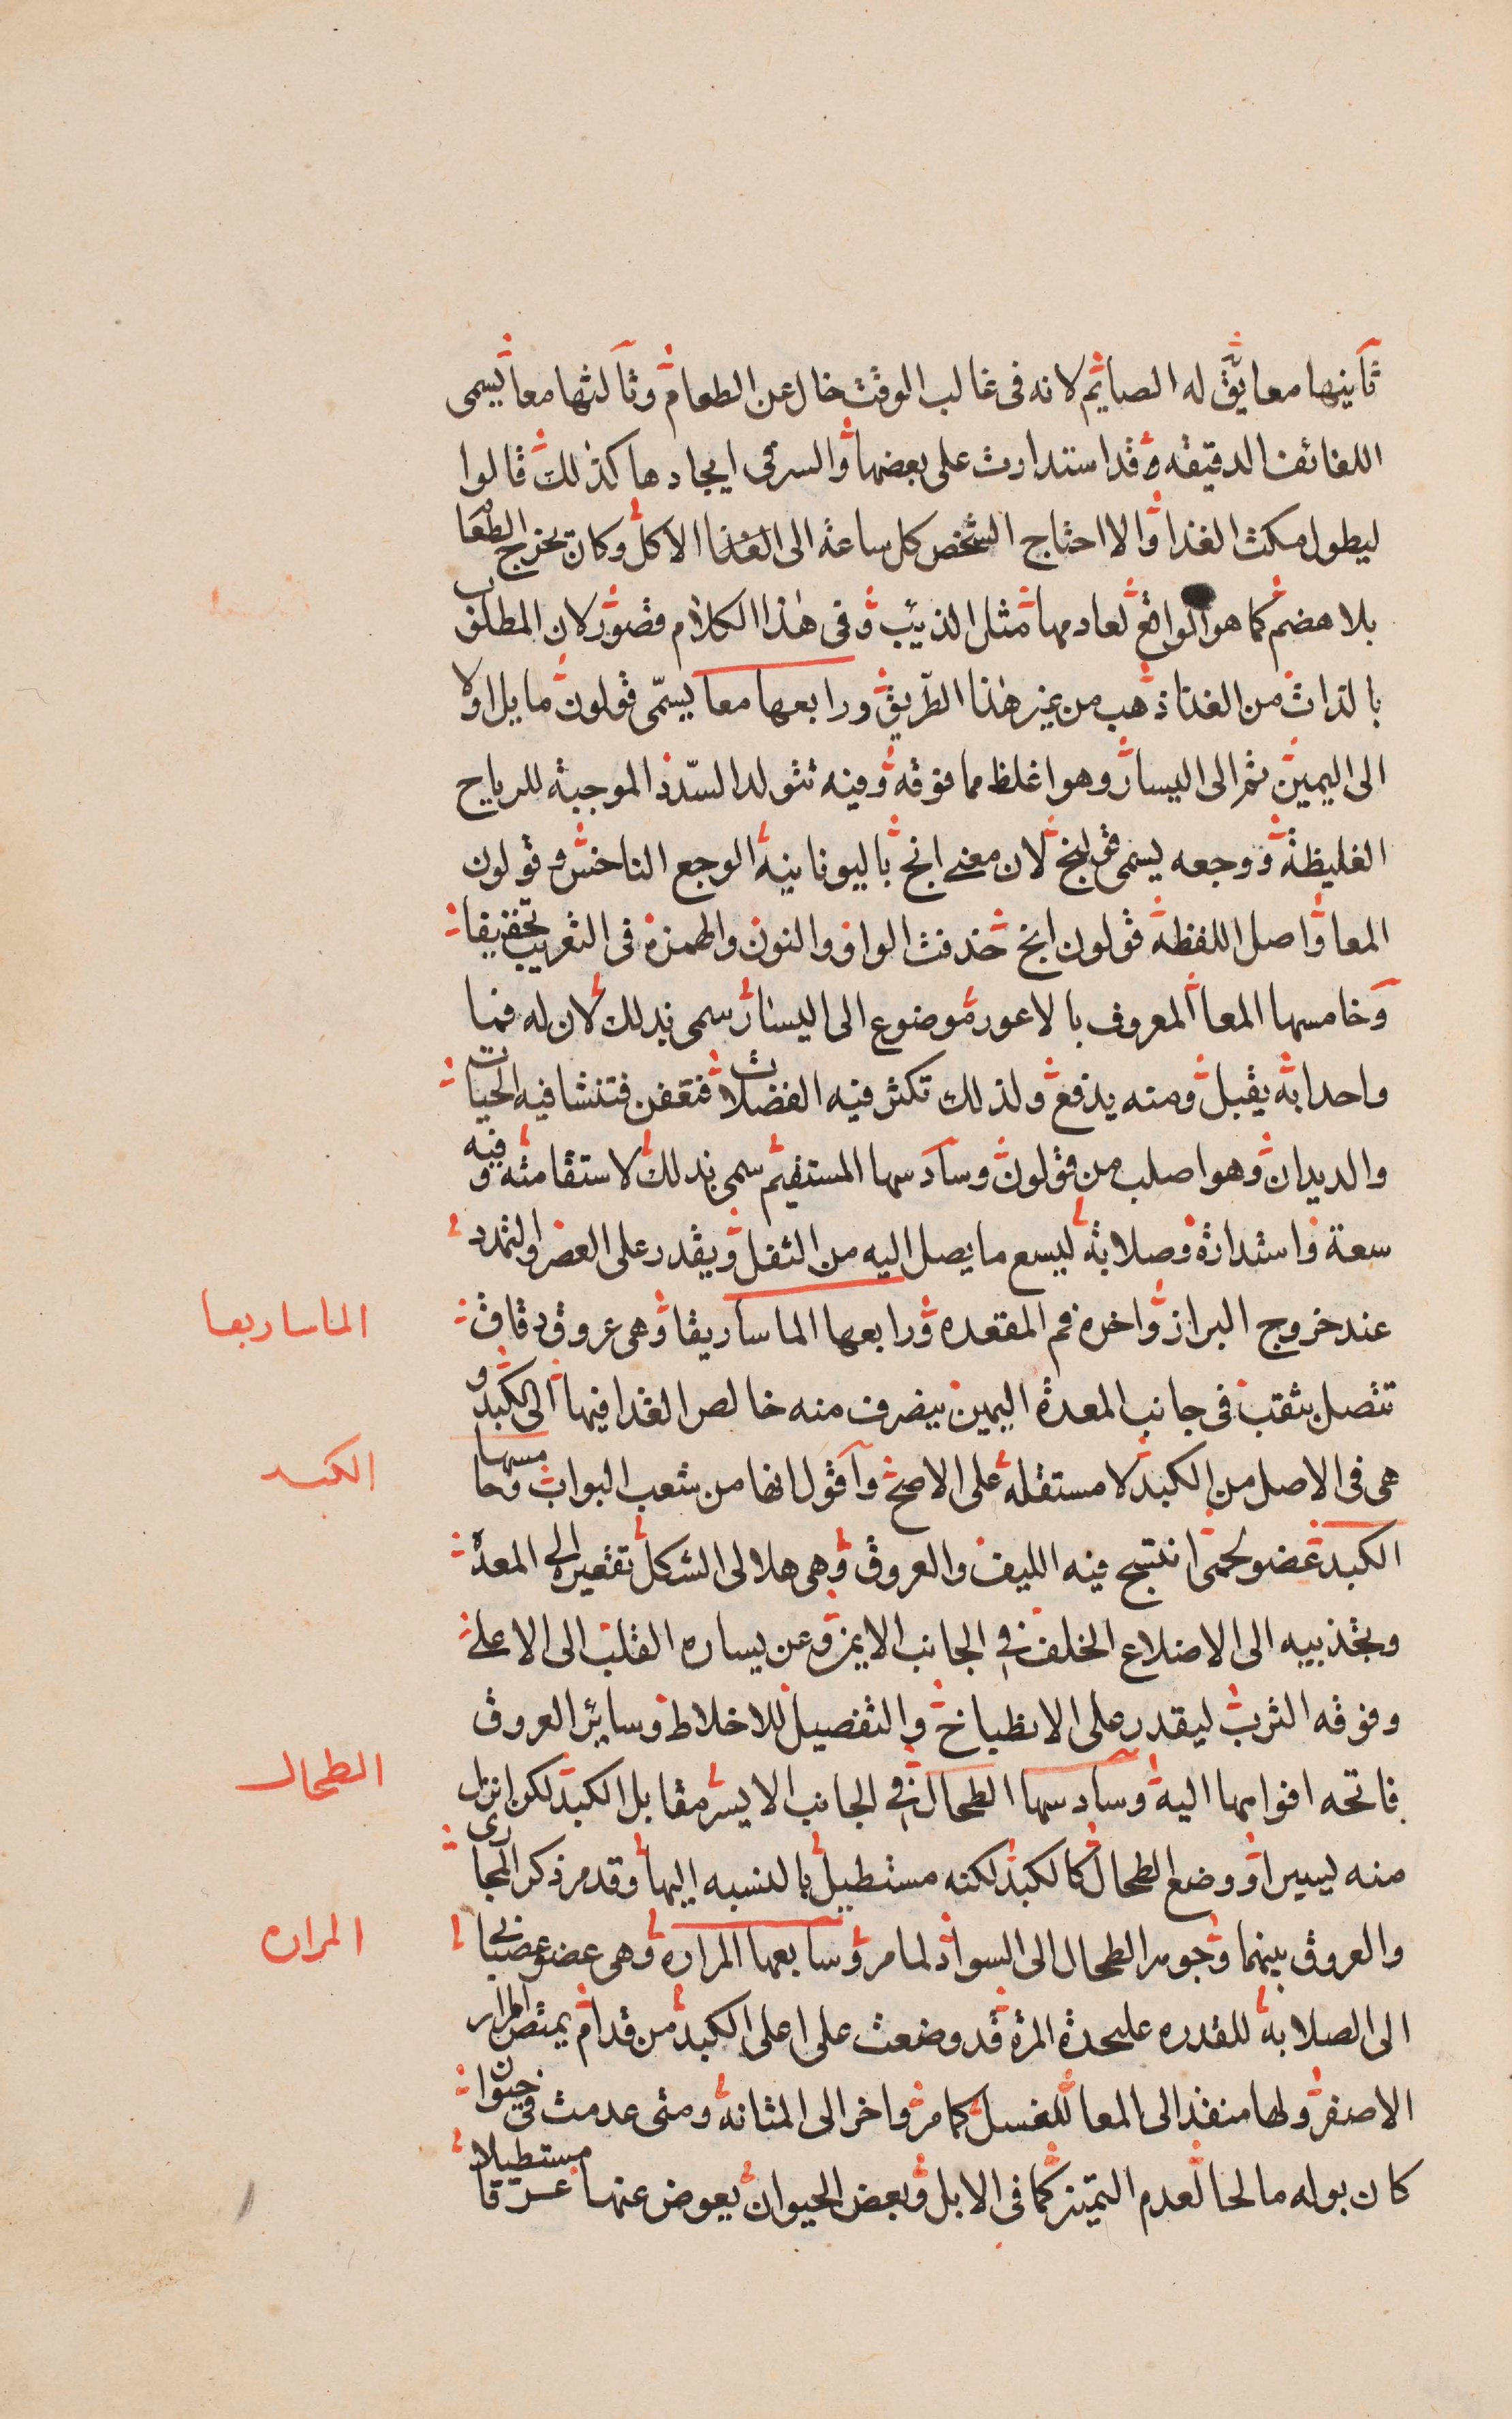 ثانيها معا يق له الصايم لانه فى غالب الوقت خال عن الطعام وثالثها معا يسمى
اللفائف الدقيقه وقد استدارت على بعضها والسر فى ايجادها كذلك قالوا
ليطول مكث الغذا والا احتاج الشخص كل ساعة الى الغذا الاكل وكان يخرج الطعا
بلا هضم كما هو الواقع لعادمها مثل الذيب وفى هذا الكلام قصور لان المطلوب
بالذات من الغذا ذهب من غير هذا الطريق ورابعها معا يسمى قولون مايل اولا
الى اليمين ثم الى اليسار وهو اغلظ مما فوقه وفيه تتولد السدد الموجبة للرياح
الغليظة ووجعه يسمى قولنج لان معنى انج باليونانية الوجع الناخس وقولون
المعا واصل اللفظة قولون انج حذفت الواو والنون والهمزة فى التعريب تخفيفا
وخامسها المعا المعروف بالاعور موضوع الى اليسار سمى بذلك لان له فما
واحدا به يقبل ومنه يدفع ولذلك تكثر فيه الفضلات فتعفن فتنشا فيه الحيات
والديدان وهو اصلب من قولون وسادسها المستقيم سمى بذلك لاستقامته وفيه
سعة واستدارة وصلابة ليسع ما يصل اليه من الثفل ويقدر على العصر والتمدد
عند خروج البراز واخره فم المقعده ورابعها الماساريقا وهى عروق دقاق
تتصل بثقب فى جانب المعدة اليمين يصرف منه خالص الغذا فيها الى الكبد و
هى فى الاصل من الكبد لا مستقلة على الاصح واقول انها من شعب البواب وخامسها
الكبد عضو لحمى انتسج فيه الليف والعروق وهى هلالى الشكل تقعيره الى المعدة
وتحديبه الى الاضلاع الخلف فى الجانب الايمن وعن يساره القلب الى الاعلى
وفوقه الثرب ليقدر على الانطباخ والتفصيل للاخلاط وساير العروق
فاتحه افواهها اليه وسادسها الطحال فى الجانب الايسر مقابل الكبد لكن انزل
منه يسيرا ووضع الطحال كالكبد لكنه مستطيل بالنسبه اليها وقد مر ذكر المجارى
والعروق بينهما وجوهر الطحال الى السواد لما مر وسابعها المراره وهى عضو عصبى
الى الصلابة للقدره على حدة المرة قد وضعت على اعلى الكبد من قدام يمتص المرار
الاصفر ولها منفذ الى المعا للغسل كما مر واخر الى المثانة ومتى عدمت فى حيوان
كان بوله مالحا لعدم التميز كما فى الابل وبعض الحيوان يعوض عنها عرقا مستطيلا
الماساريقا
الكبد
الطحال
المراره